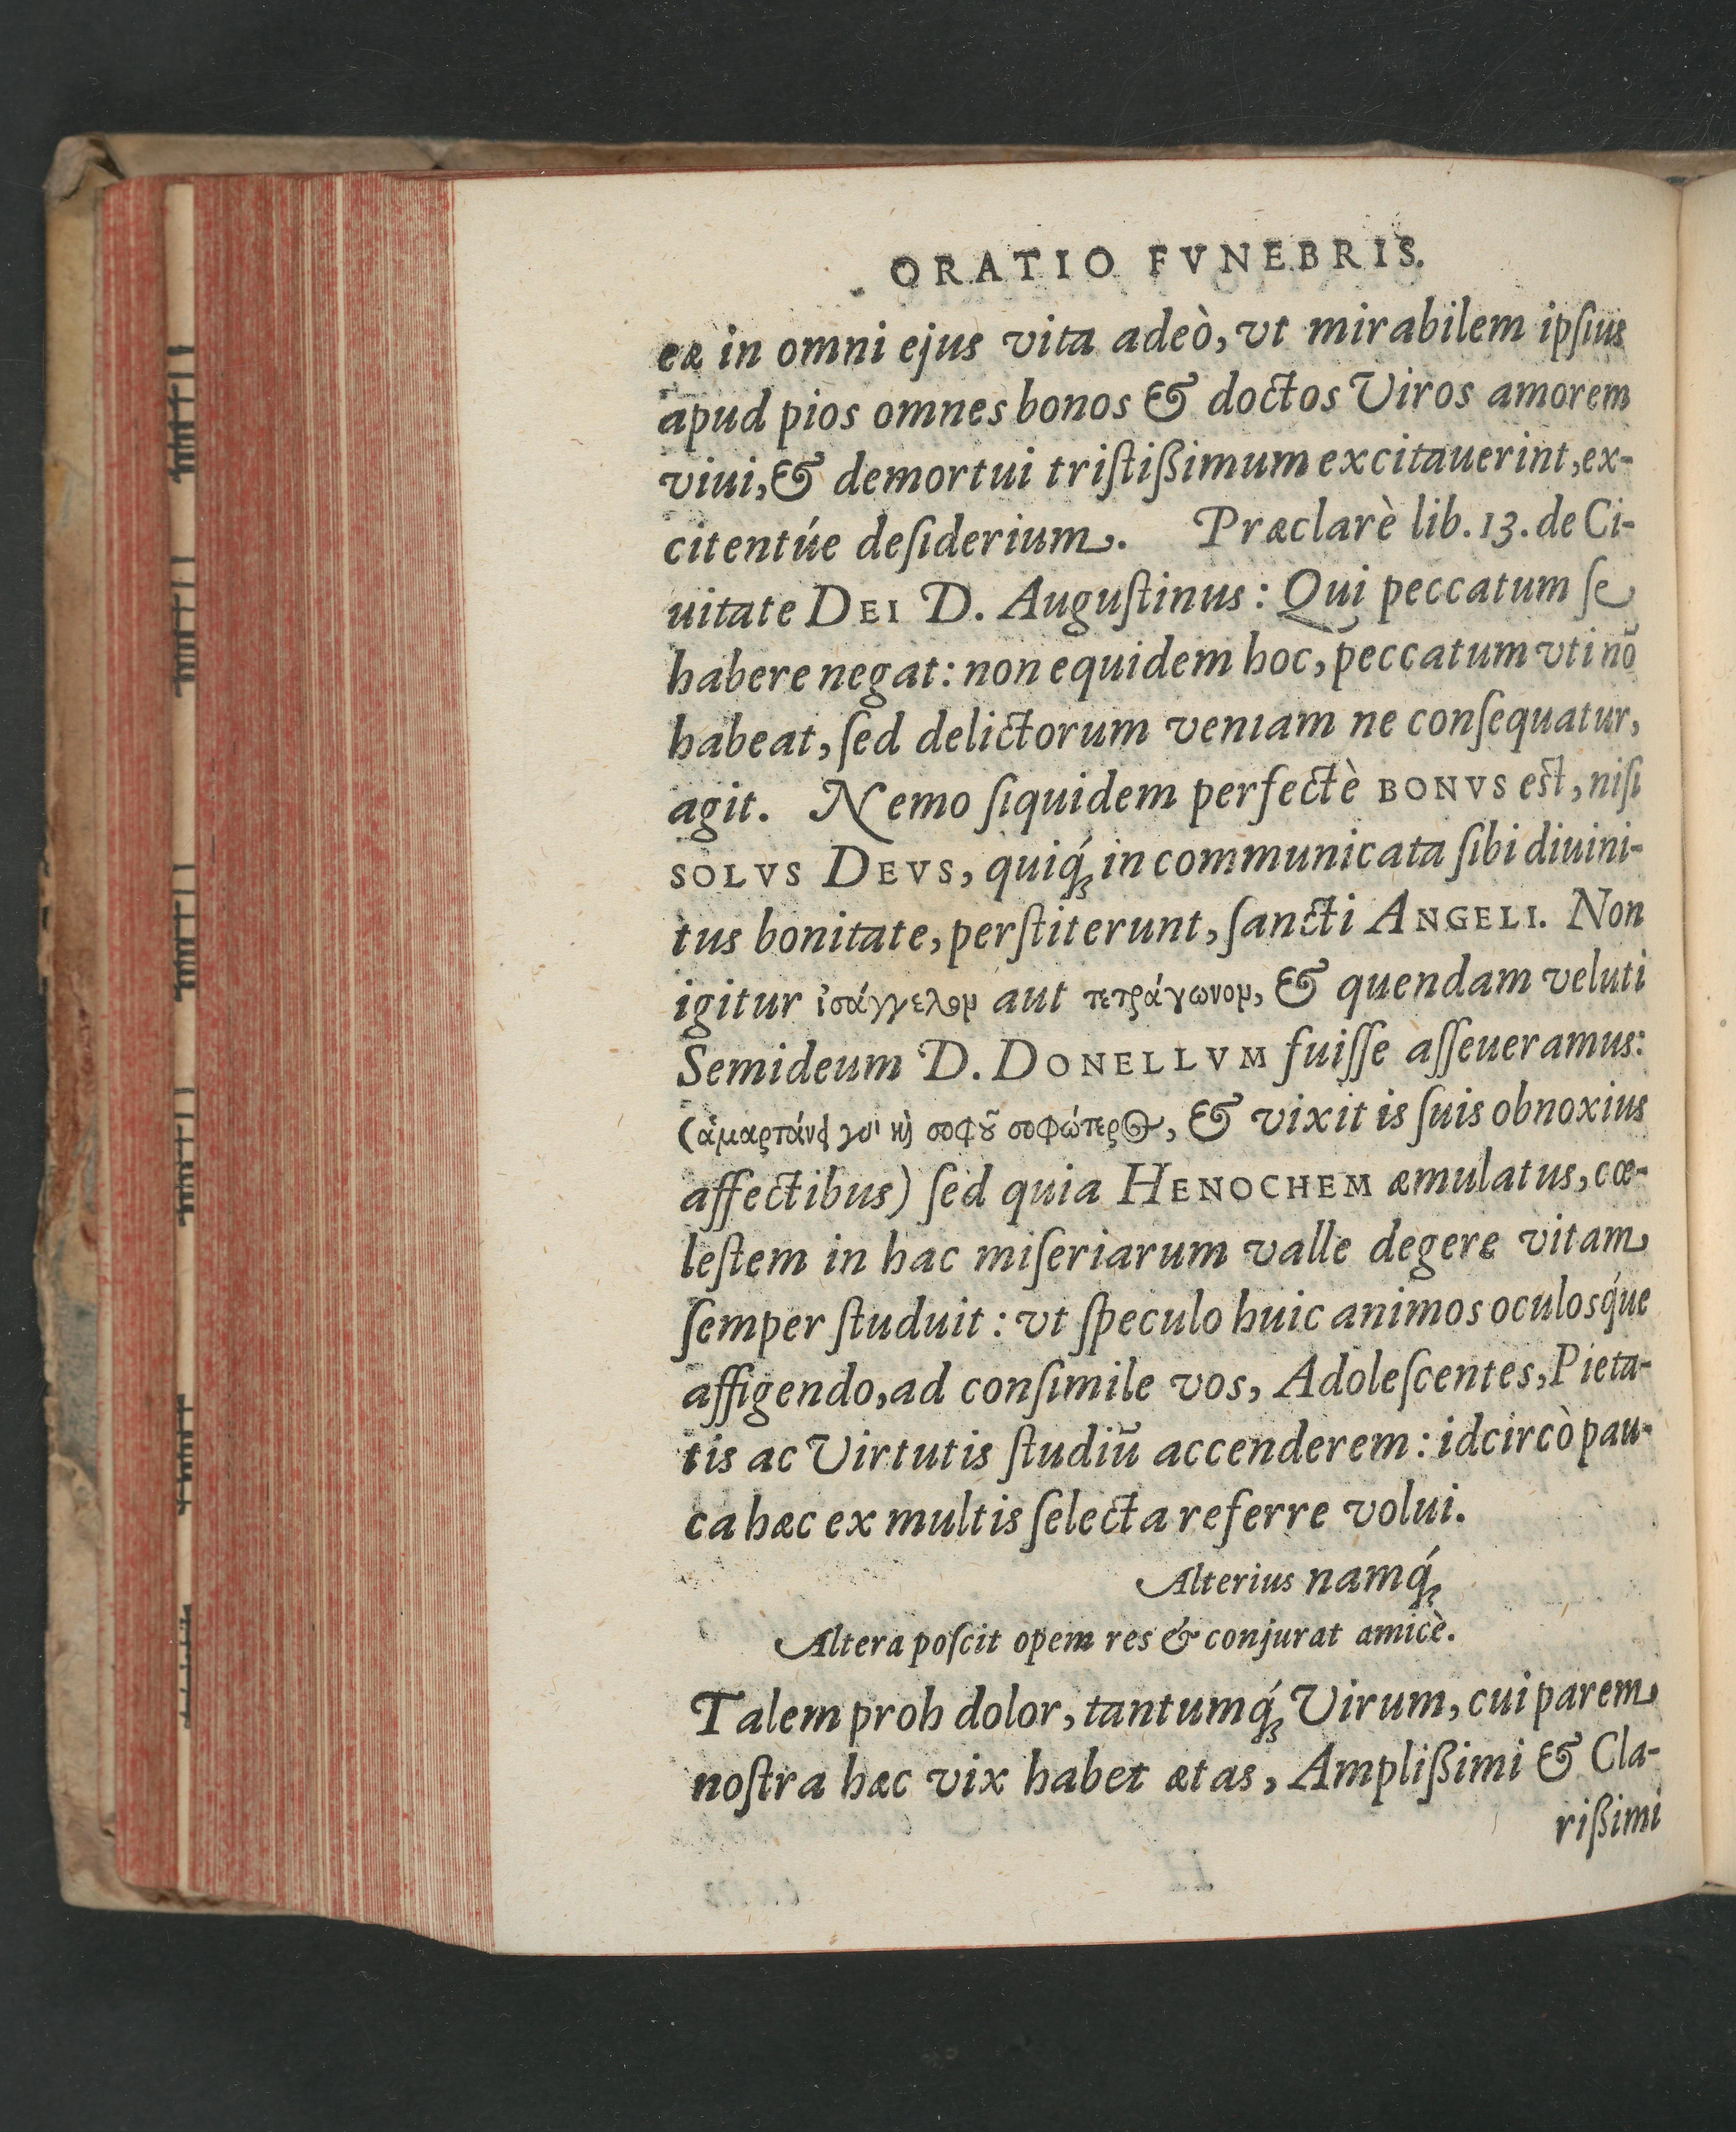 ORATIO FVNEBRIS.
eæ in omni ejus vita adeò, vt mirabilem ipſius
apud pios omnes bonos & doctos Viros amorem
viui, & demortui triſtißimum excitauerint, ex-
citentúe deſiderium. Præclarè lib. 13. de Ci-
uitate DEI D. Auguſtinus: Qui peccatum ſe
habere negat: non equidem hoc, peccatum vti nō
habeat, ſed delictorum veniam ne conſequatur,
agit. Nemo ſiquidem perfectè BONVS est, niſi
SOLVS DEVS, quiq́; in communicata ſibi diuini-
tus bonitate, perſtiterunt, ſancti ANGELI. Non
igitur ἰσάγγελον aut τετράγωνον, & quendam veluti
Semideum D. DONELLVM fuiſſe aſſeueramus:
(ἁμαρτάνει καὶ σοφοῦ σοφώτερος, & vixit is ſuis obnoxius
affectibus) ſed quia HENOCHEM æmulatus, cœ-
leſtem in hac miſeriarum valle degere vitam
ſemper ſtuduit: vt ſpeculo huic animos oculosq́ue
affigendo, ad conſimile vos, Adoleſcentes, Pieta-
tis ac Virtutis ſtudiū accenderem: idcircò pau-
ca hæc ex multis ſelecta referre volui.
Alterius namq́;
Altera poſcit opem res & conjurat amicè.
Talem proh dolor, tantumq́; Virum, cui parem
noſtra hæc vix habet ætas, Amplißimi & Cla-
rißimi